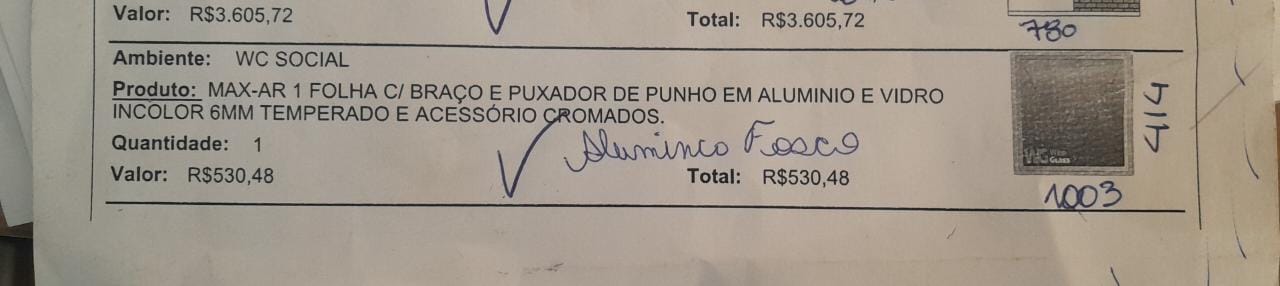 Valor: R$3.605,72
Total: R$3.605,72
780
Ambiente: WC SOCIAL
Produto: MAX-AR 1 FOLHA C/ BRAÇO E PUXADOR DE PUNHO EM ALUMINIO E VIDRO
INCOLOR 6MM TEMPERADO E ACESSÓRIO CROMADOS.
Quantidade: 1
Aluminco Fosco
Valor: R$530,48
Total: R$530,48
414
1003